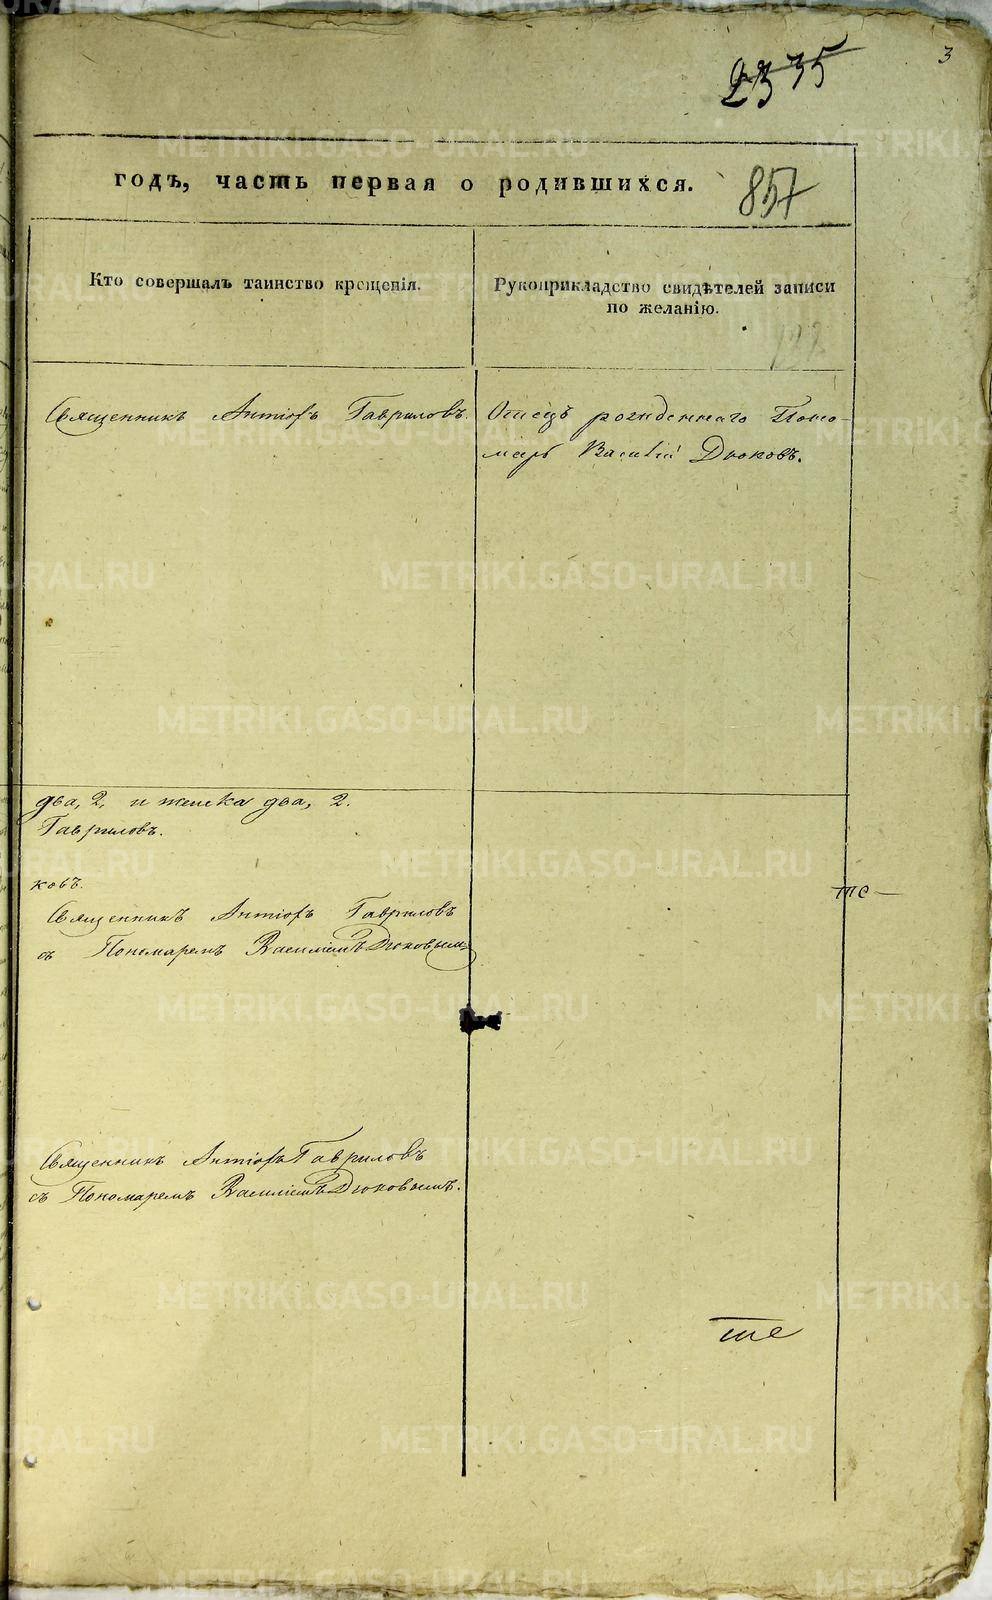 3
2335
годъ, часть первая о родившихся.
857
Кто совершалъ таинство крещенія.
Рукоприкладство свидѣтелей записи
по желанію.
122
Священникъ Антіофъ Гавриловъ.
Отецъ рожденнаго Поно-
марь Василій Дьюковъ.
два, 2, и женска два, 2.
Гавриловъ.
ковъ.
Священникъ Антіофъ Гавриловъ
съ Пономаремъ Василіемъ Дьюковымъ
Священникъ Антіофъ Гавриловъ
съ Пономаремъ Василіемъ Дьюковымъ.
METRIKI.GASO-URAL.RU